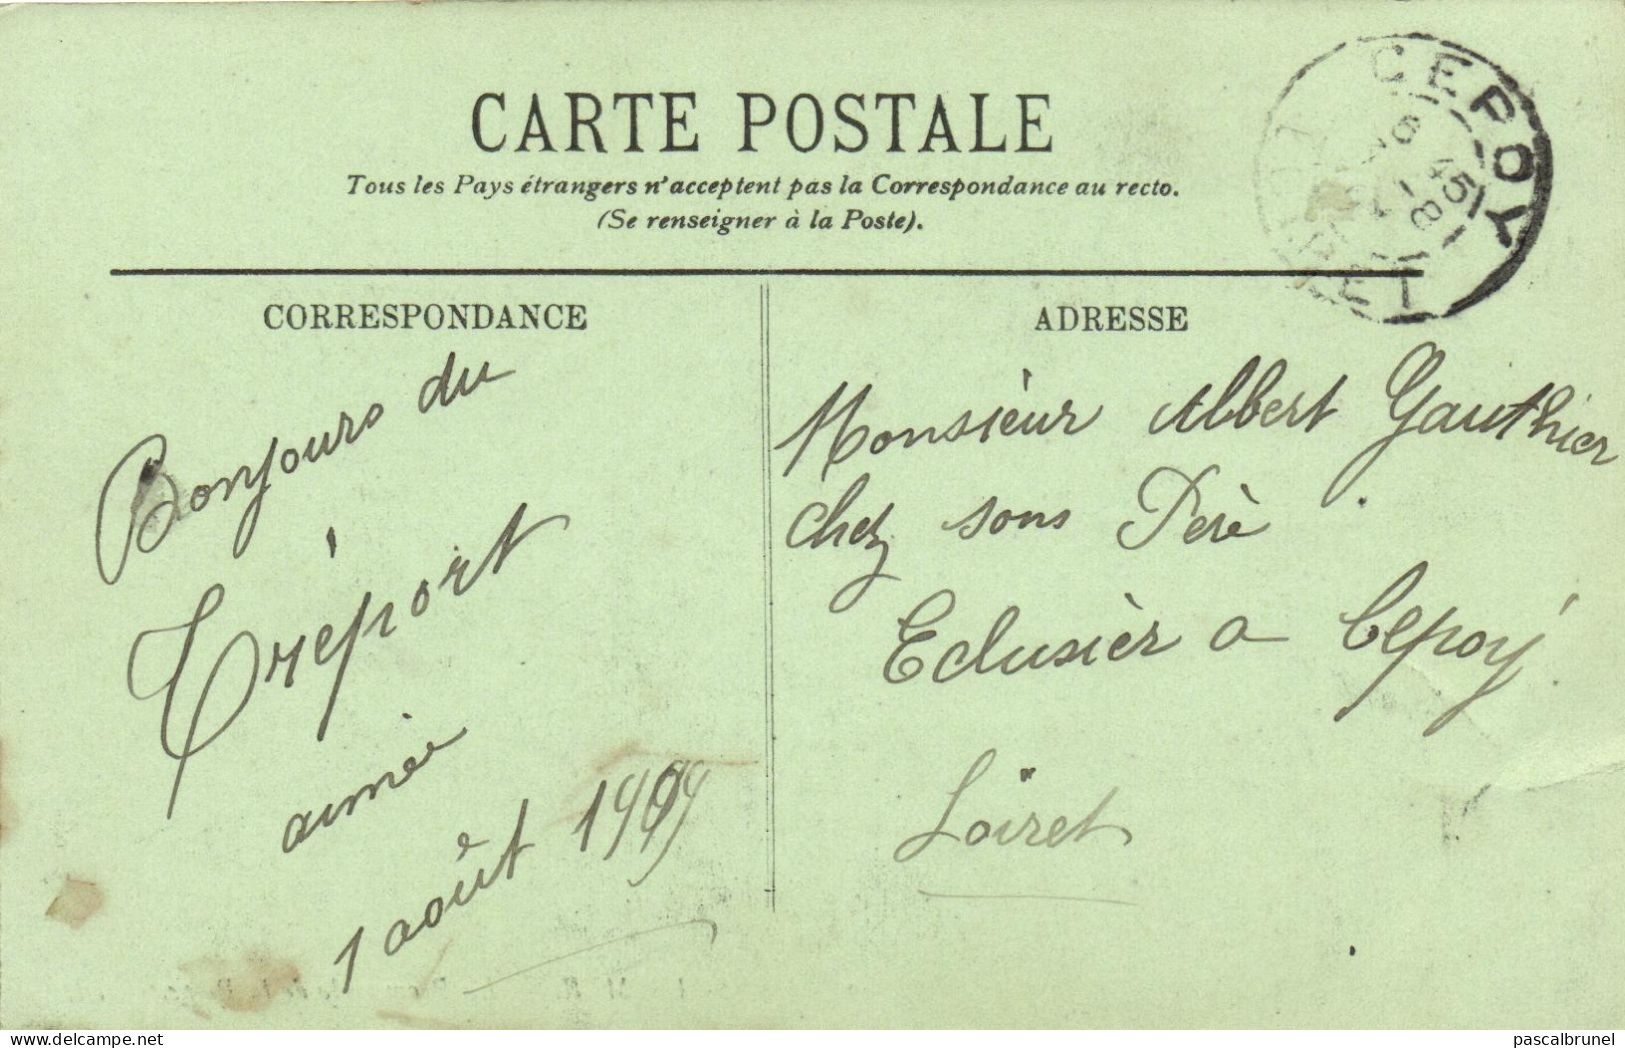 CARTE POSTALE
Tous les Pays étrangers n'acceptent pas la Correspondance au recto.
(Se renseigner à la Poste).
CEPOY
6 45
-8
LOIRET
CORRESPONDANCE
Bonjours du
Tréport
aimée
1 août 1909
ADRESSE
Monsieur Albert Gauthier
chez sons Père
Eclusièr a Cepoy
Loiret
delcampe.net
pascalbrunel